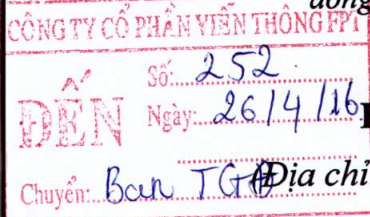 đồng
CÔNG TY CỔ PHẦN VIỄN THÔNG FPT
ĐẾN
Số: 252
Ngày: 26/4/16
Chuyển: Ban TGĐ
(Địa chỉ